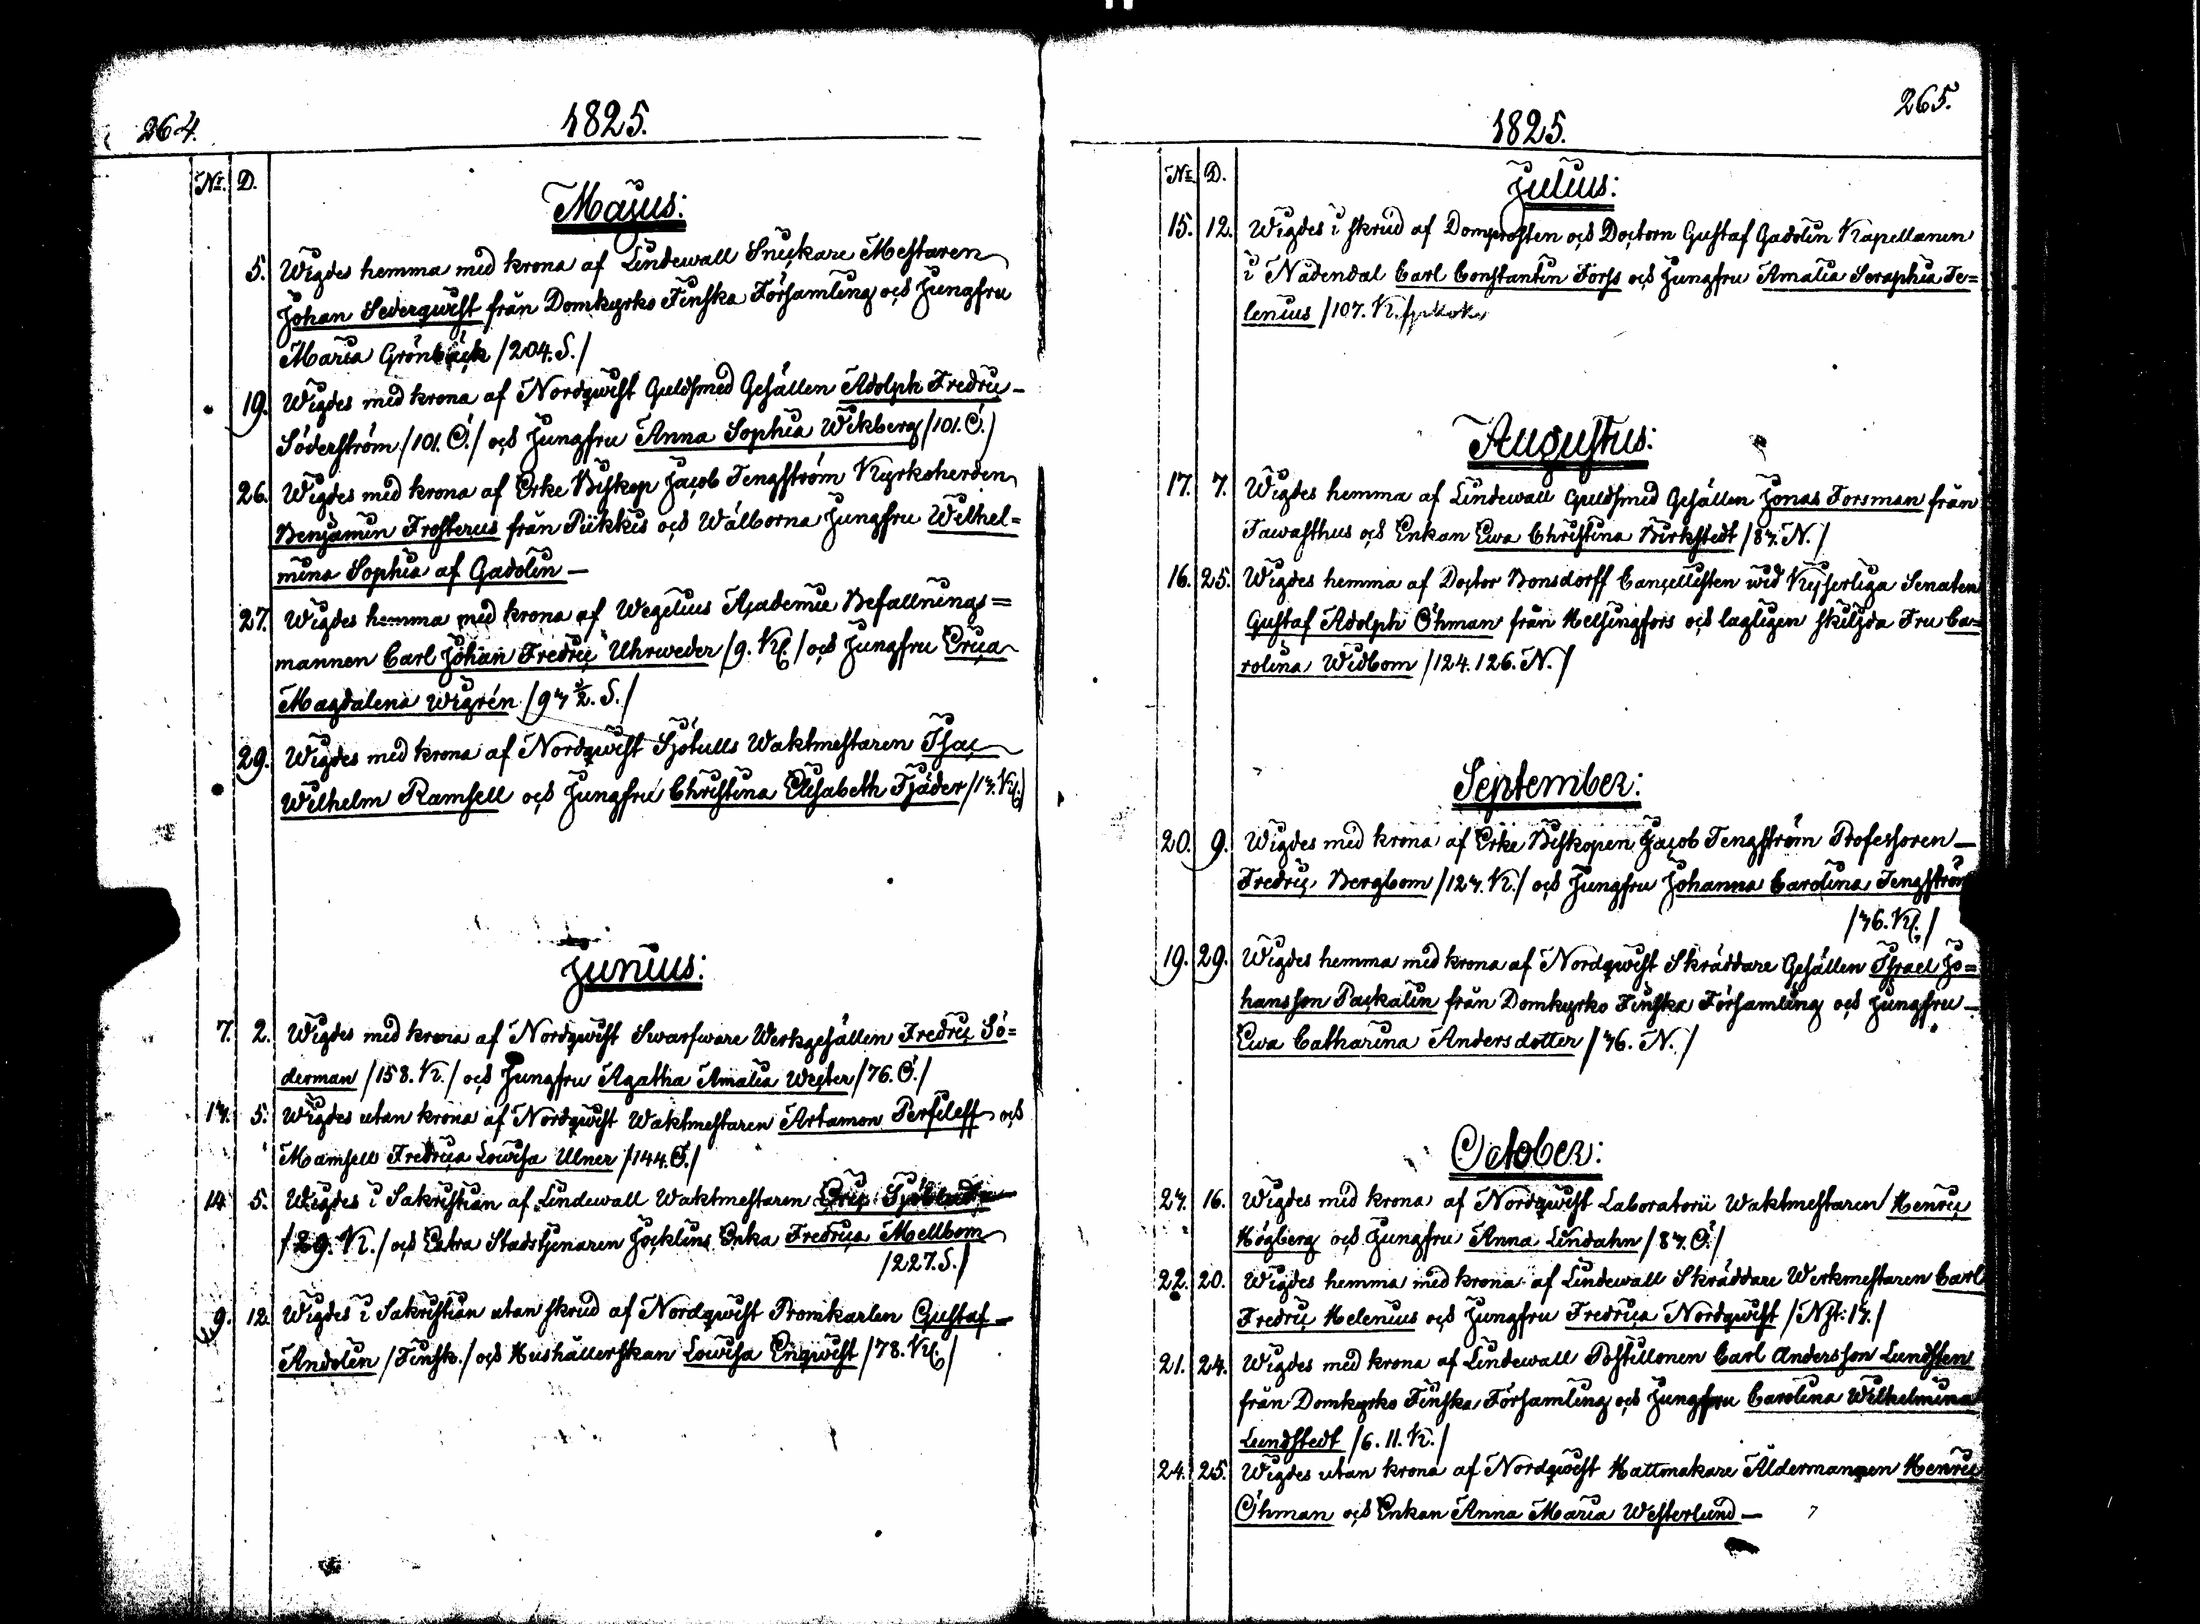 264.
1825.
Nr. D.
Majus:
5. Wigdes hemma med krona af Lindewall Snickare Mestaren
Johan Sederqwist från Domkyrko Finska Församling och Jungfru
Maria Grönbäck /204. S./
19. Wigdes med krona af Nordqwist Guldsmed Gesällen Adolph Fredric
Söderström /101. Ö./ och Jungfru Anna Sophia Wikberg /101. Ö./
26. Wigdes med krona af Erke Biskop Jacob Tengström Kyrkoherden
Benjamin Frosterus från Piikkis och Wälborna Jungfru Wilhel=
mina Sophia af Gadolin —
27. Wigdes hemma med krona af Wegelius Academie Befallnings=
mannen Carl Johan Fredric Uhrweder /9. Kl./ och Jungfru Erica
Magdalena Wigrén /97 1/2. S./
29. Wigdes med krona af Nordqwist Sjötulls Waktmestaren Isac
Wilhelm Ramsell och Jungfru Christina Elisabeth Tjäder /17. Kl./
Junius:
7. 2. Wigdes med krona af Nordqwist Swarfware Werkgesällen Fredric Sö=
derman /158. K./ och Jungfru Agatha Amalia Wester /76. Ö./
17. 5. Wigdes utan krona af Nordqwist Waktmestaren Artamon Perfileff och
Mamsell Fredrica Lowisa Ulner /144. Ö./
14. 5. Wigdes i Sakristian af Lindewall Waktmestaren Eric
/29. K./ och Extra Stadstjenaren Jocklins Enka Fredrica Mellbom
/227. S./
9. 12. Wigdes i Sakristian utan skrud af Nordqwist Promkarlen Gustaf
Andolin /Finsk./ och Hushållerskan Lowisa Enqwist /78. Kl./
265.
1825.
Nr. D.
Julius:
15. 12. Wigdes i skrud af Domprosten och Doctorn Gustaf Gadolin Kapellanen
i Nådendal Carl Constantin Forss och Jungfru Amalia Seraphia Te=
lenius /107. K.
Augustus:
17. 7. Wigdes hemma af Lindewall Guldsmed Gesällen Jonas Forsman från
Tawasthus och Enkan Ewa Christina Birkstedt /87. N./
16. 25. Wigdes hemma af Doctor Bonsdorff Cancellisten wid Kejserliga Senaten
Gustaf Adolph Öhman från Helsingfors och lagligen skiljda Fru Ca=
rolina Widbom /124. 126. N./
September:
20. 9. Wigdes med krona af Erke Biskopen Jacob Tengström Professoren —
Fredric Bergbom /127. K./ och Jungfru Johanna Carolina Tengström
/76. Kl./
19. 29. Wigdes hemma med krona af Nordqwist Skräddare Gesällen Israel Jo=
hansson Packalin från Domkyrko Finska Församling och Jungfru —
Ewa Catharina Andersdotter /76. N./
October:
27. 16. Wigdes med krona af Nordqwist Laboratorii Waktmestaren Henric
Högberg och Jungfru Anna Lindahn /87. Ö./
22. 20. Wigdes hemma med krona af Lindewall Skräddare Werkmestaren Carl
Fredric Helenius och Jungfru Fredrica Nordqwist /Nst: 17./
21. 24. Wigdes med krona af Lindewall Postillonen Carl Andersson Lundsten
från Domkyrko Finska Församling och Jungfru Carolina Wilhelmina
Lundstedt /6. 11. K./
24. 25. Wigdes utan krona af Nordqwist Hattmakare Åldermannen Henric
Öhman och Enkan Anna Maria Westerlund —